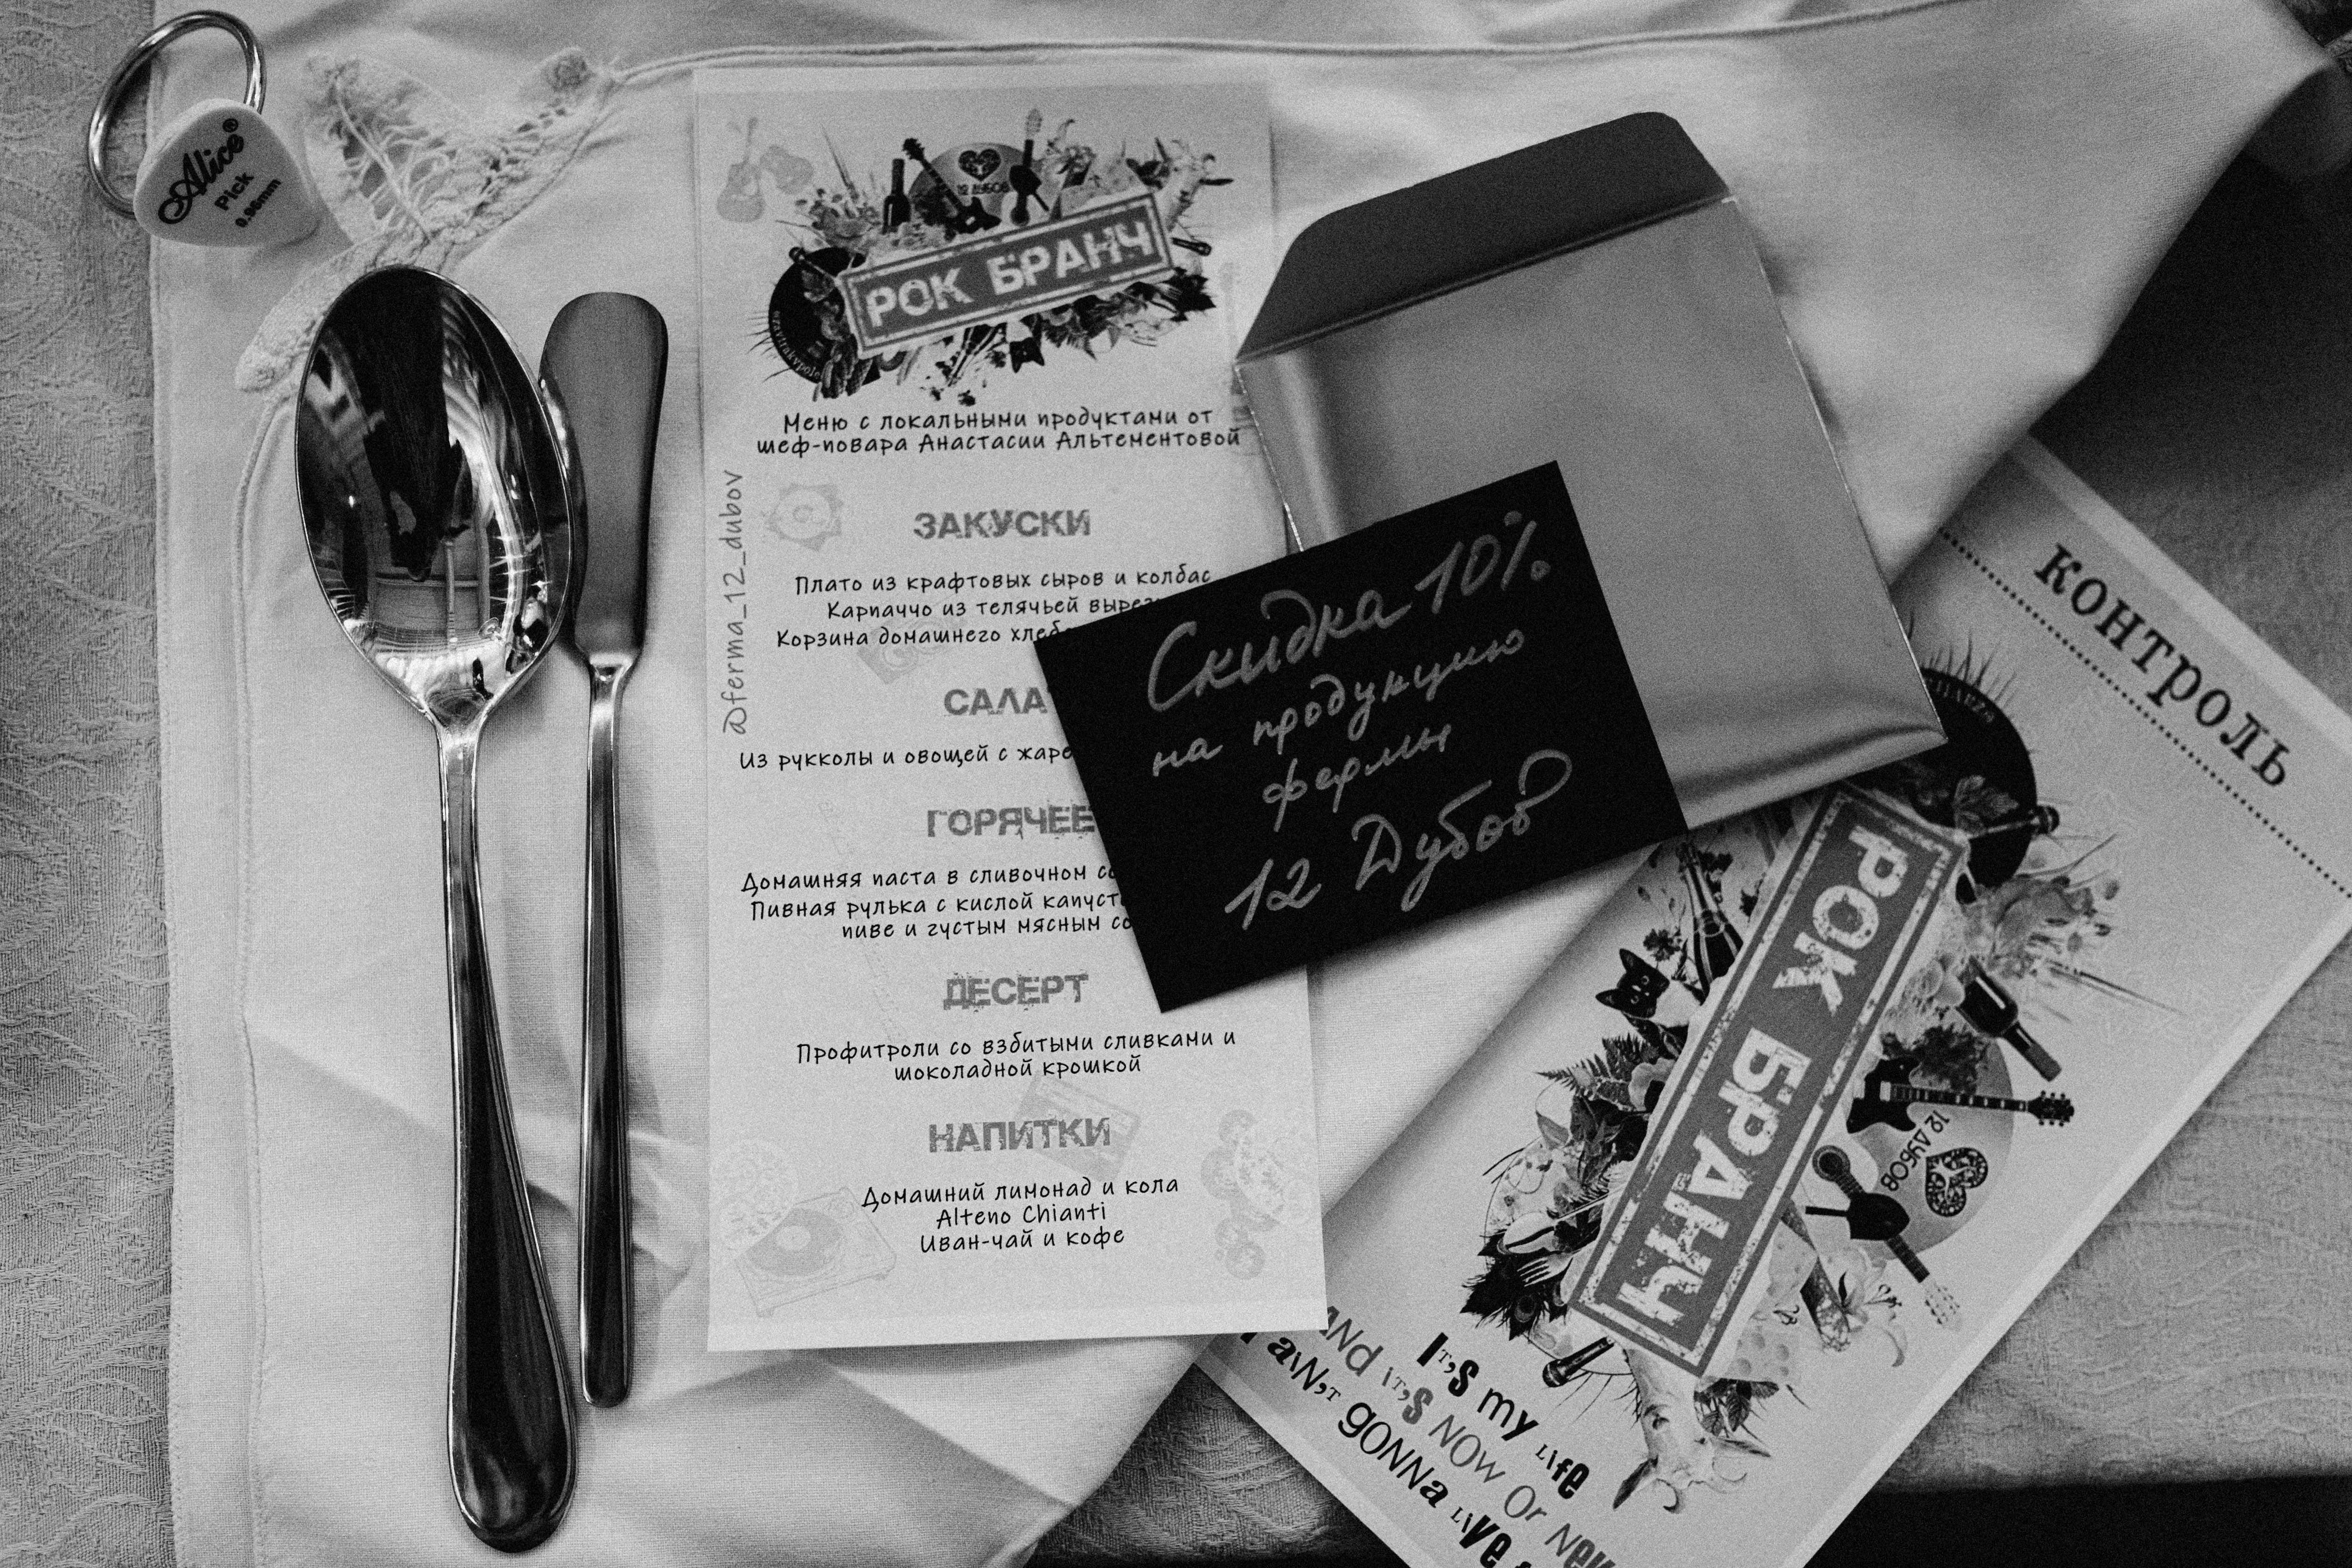 Alice®
Pick
0.96mm
12 ДУБОВ
РОК БРАНЧ
Меню с локальными продуктами от
шеф-повара Анастасии Альтементовой
@ferma_12_dubov
ЗАКУСКИ
Плато из крафтовых сыров и колбас
Карпаччо из телячьей
Корзина домашнего
САЛАТ
Из рукколы и овощей с
ГОРЯЧЕЕ
Домашняя паста в сливочном
Пивная рулька с кислой
пиве и густым мясным
ДЕСЕРТ
Профитроли со взбитыми сливками и
шоколадной крошкой
НАПИТКИ
Домашний лимонад и кола
Alteno Chianti
Иван-чай и кофе
Скидка 10%
на продукцию
фермы
12 Дубов
контроль
РОК БРАНЧ
12 ДУБОВ
IT'S my LIfe
ANd IT'S NOw Or
I aIN'T gONNa LIve